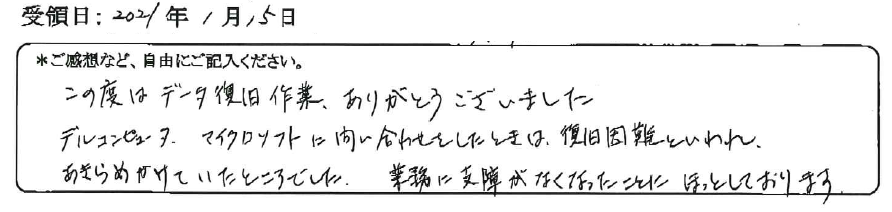 受領日: 2021年1月15日
*ご感想など、自由にご記入ください。
この度はデータ復旧作業、ありがとうございました
デルコンピュータ、マイクロソフトに問い合わせをしたときは、復旧困難といわれ、
あきらめかけていたところでした。業務に支障がなくなったことにほっとしております。